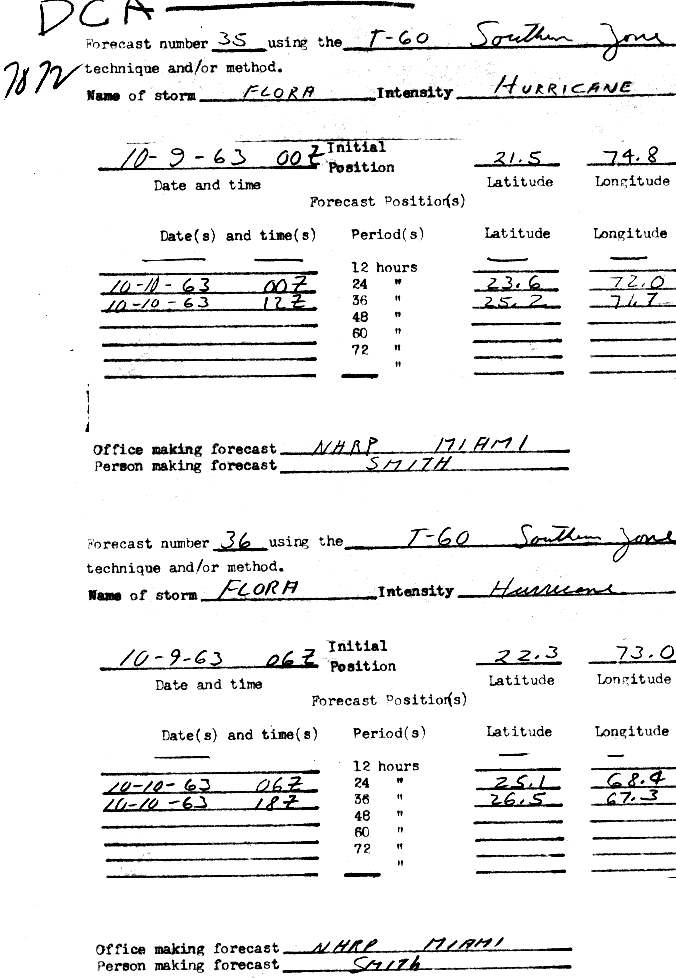 DCA
Forecast number 35 using the T-60 Southern Zone
technique and/or method.
Name of storm FLORA Intensity HURRICANE
10-9-63 00Z Initial Position 21.5 74.8
Date and time Latitude Longitude
Forecast Position(s)
Date(s) and time(s) Period(s) Latitude Longitude
12 hours
10-10-63 00Z 24 " 23.6 72.0
10-10-63 12Z 36 " 25.2 71.7
48 "
60 "
72 "
"
Office making forecast NHRP MIAMI
Person making forecast SMITH
Forecast number 36 using the T-60 Southern Zone
technique and/or method.
Name of storm FLORA Intensity Hurricane
10-9-63 06Z Initial Position 22.3 73.0
Date and time Latitude Longitude
Forecast Position(s)
Date(s) and time(s) Period(s) Latitude Longitude
12 hours
10-10-63 06Z 24 " 25.1 68.4
10-10-63 18Z 36 " 26.5 67.3
48 "
60 "
72 "
"
Office making forecast NHRP MIAMI
Person making forecast SMITh